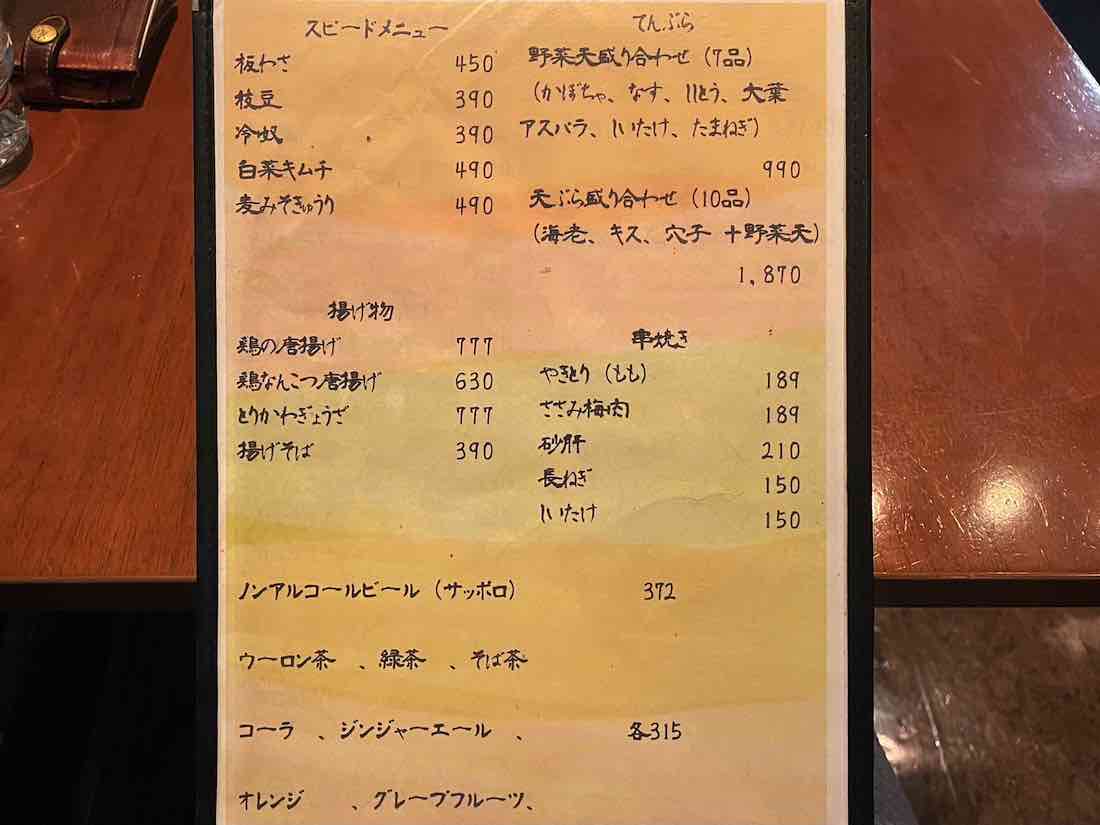 スピードメニュー
板わさ 450
枝豆 390
冷奴 390
白菜キムチ 490
麦みそきゅうり 490
揚げ物
鶏の唐揚げ 777
鶏なんこつ唐揚げ 630
とりかわぎょうざ 777
揚げそば 390
てんぷら
野菜天盛り合わせ（7品）
（かぼちゃ、なす、ししとう、大葉
アスパラ、しいたけ、たまねぎ）
990
天ぷら盛り合わせ（10品）
（海老、キス、穴子 +野菜天）
1,870
串焼き
やきとり（もも） 189
ささみ梅肉 189
砂肝 210
長ねぎ 150
しいたけ 150
ノンアルコールビール（サッポロ） 372
ウーロン茶 、緑茶 、そば茶
コーラ 、ジンジャーエール 、 各315
オレンジ 、グレープフルーツ、